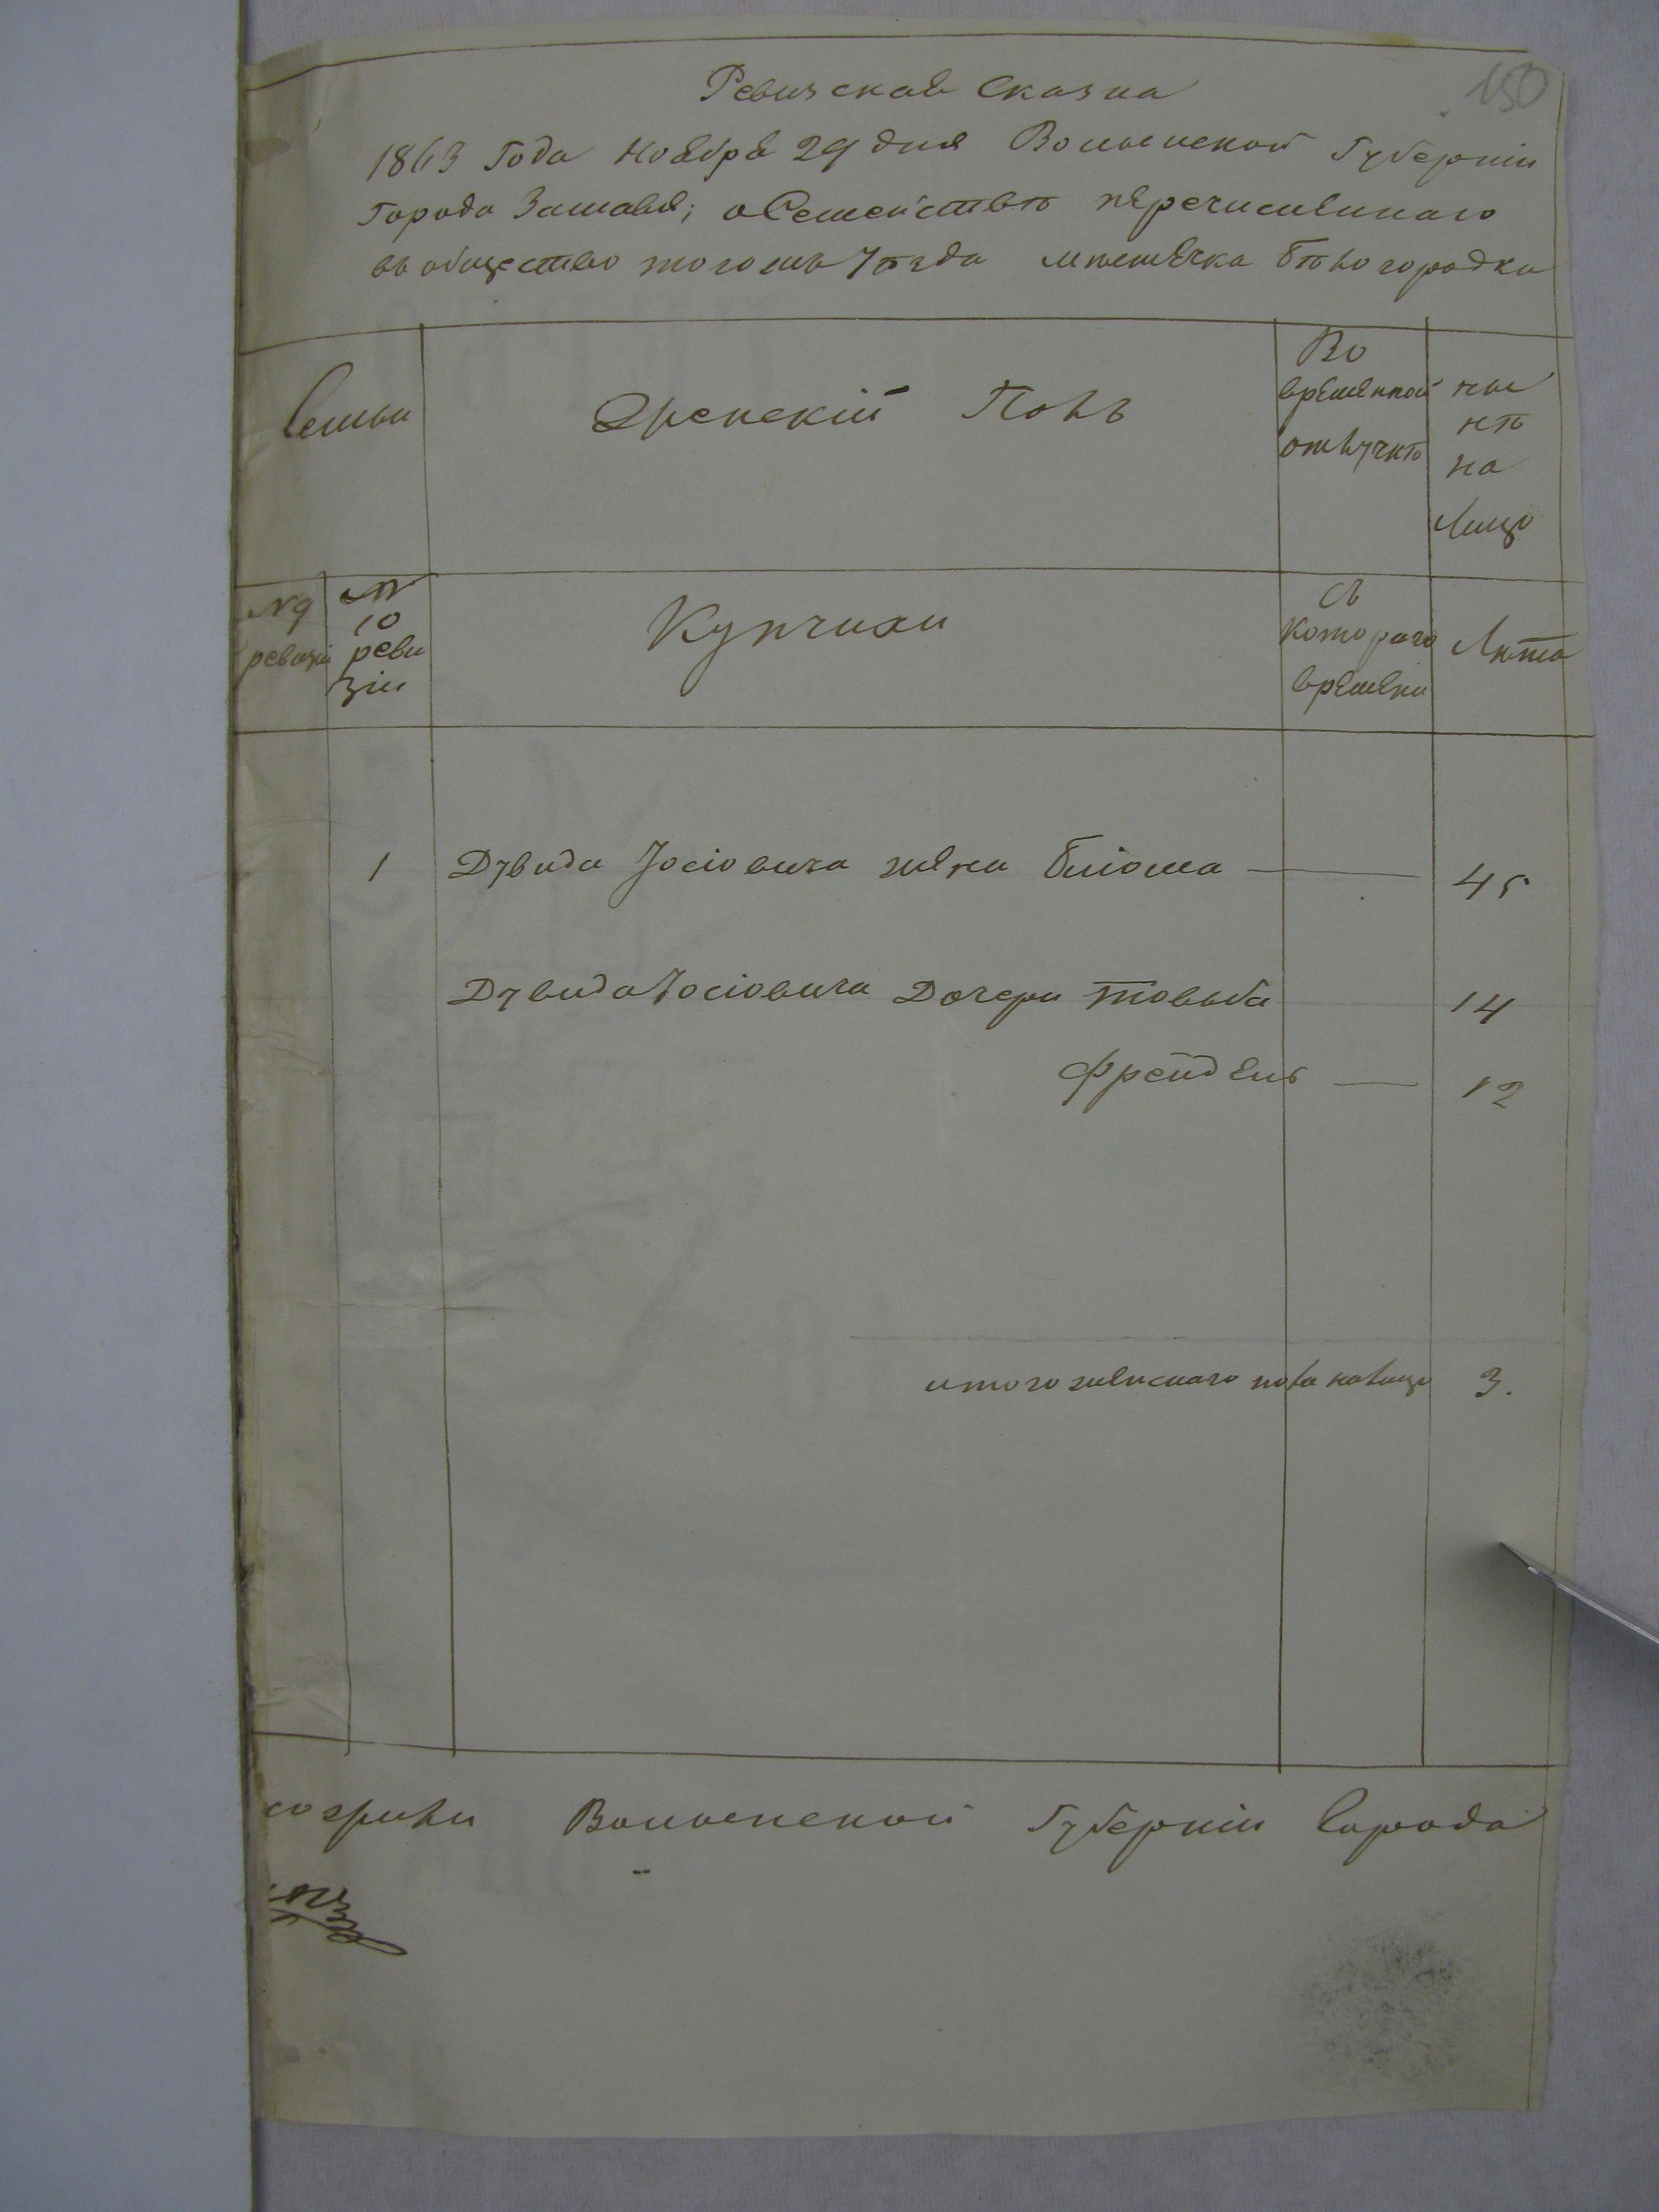 150
Ревизская Сказка
1863 Года Ноября 29 дня Волынской Губерніи
Города Заславля; о Семействѣ перечисленнаго
въ общество тогожъ Уѣзда мѣстечка Бѣлогородка
Семьи
Женскій Полъ
Во временной отлучкѣ
ны нѣ на лицо
№ 9 ревизіи
№ 10 реви зіи
Купчихи
Съ котораго времени
Лѣта
1 Дувида Іосіовича жена Бліома — 45
Дувида Іосіовича Дочери Товыба 14
Фрейдель — 12
итого женскаго пола на лицо 3.
Волынской Губерніи Города